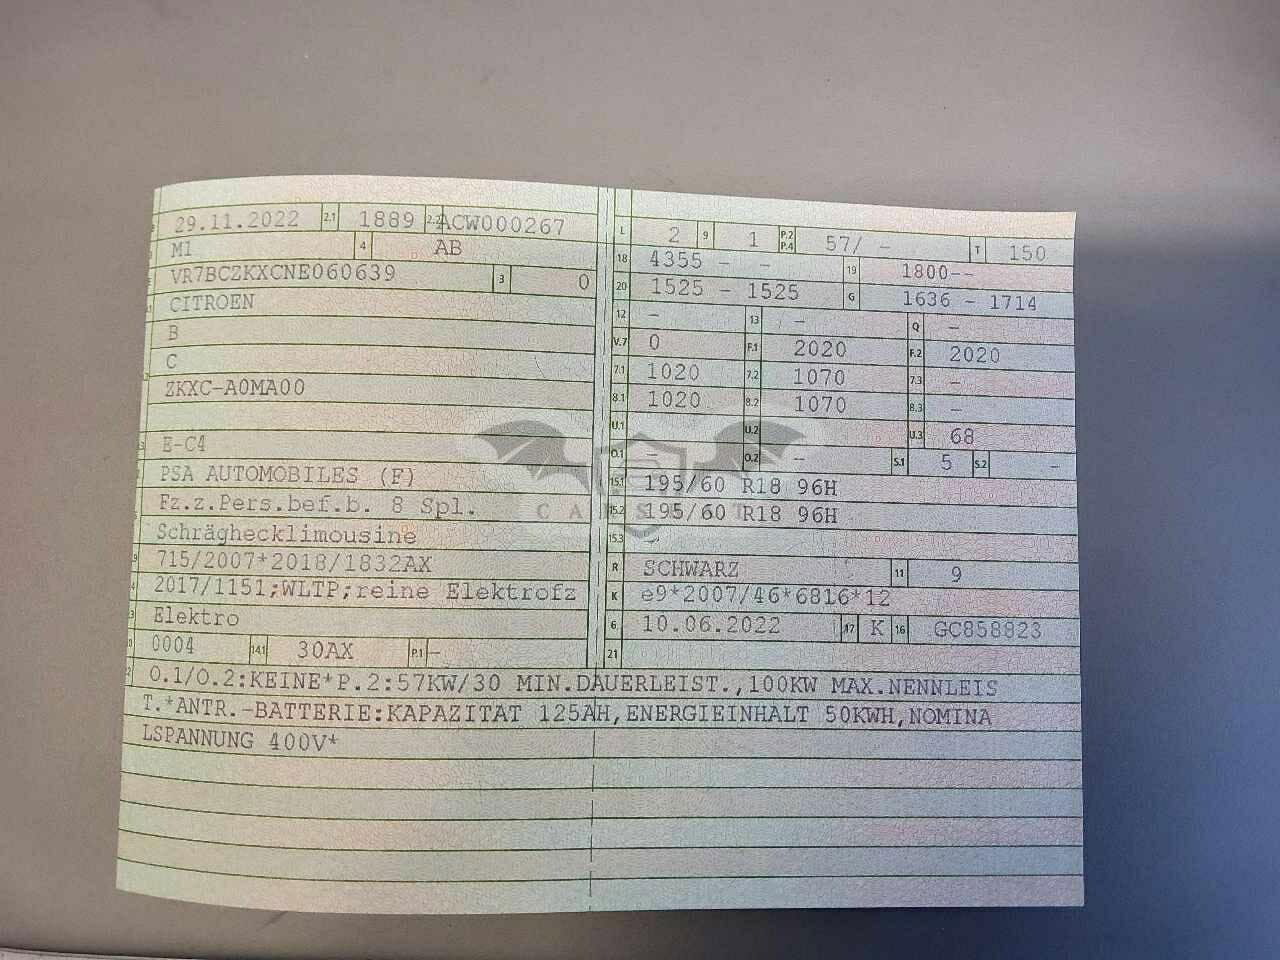 29.11.2022 2.1 1889 2.2 ACW000267
M1 4 AB
VR7BCZKXCNE060639 3 0
CITROEN
B
C
ZKXC-A0MA00
E-C4
PSA AUTOMOBILES (F)
Fz.z.Pers.bef.b. 8 Spl.
Schräghecklimousine
715/2007*2018/1832AX
2017/1151;WLTP;reine Elektrofz
Elektro
0004 14.1 30AX P.1 -
L 2 9 1 P.2 P.4 57/ - T 150
18 4355 - - 19 1800--
20 1525 - 1525 G 1636 - 1714
12 - 13 - Q -
V.7 0 F.1 2020 F.2 2020
7.1 1020 7.2 1070 7.3 -
8.1 1020 8.2 1070 8.3 -
U.1 U.2 U.3 68
O.1 - O.2 - S.1 5 S.2 -
15.1 195/60 R18 96H
15.2 195/60 R18 96H
15.3 -
R SCHWARZ 11 9
K e9*2007/46*6816*12
6 10.06.2022 17 K 16 GC858823
21
O.1/O.2:KEINE*P.2:57KW/30 MIN.DAUERLEIST.,100KW MAX.NENNLEIS
T.*ANTR.-BATTERIE:KAPAZITAT 125AH,ENERGIEINHALT 50KWH,NOMINA
LSPANNUNG 400V*